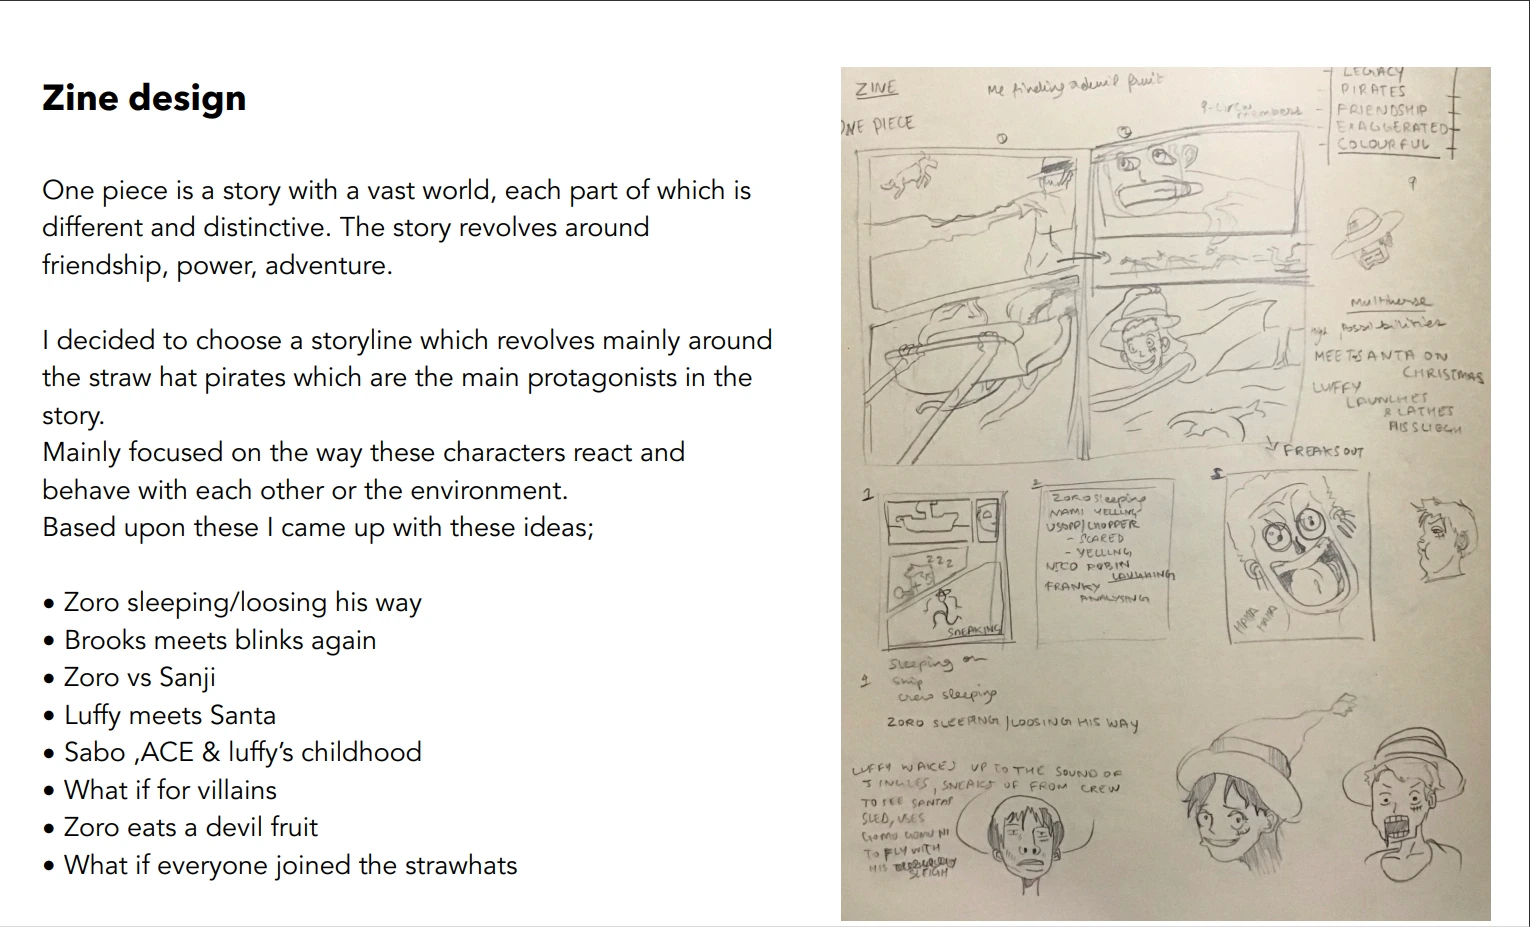 Zine design
One piece is a story with a vast world, each part of which is
different and distinctive. The story revolves around
friendship, power, adventure.
I decided to choose a storyline which revolves mainly around
the straw hat pirates which are the main protagonists in the
story.
Mainly focused on the way these characters react and
behave with each other or the environment.
Based upon these I came up with these ideas;
• Zoro sleeping/loosing his way
• Brooks meets blinks again
• Zoro vs Sanji
• Luffy meets Santa
• Sabo ,ACE & luffy's childhood
• What if for villains
• Zoro eats a devil fruit
• What if everyone joined the strawhats
ZINE
Me finding a devil fruit
ONE PIECE
9-crew
members
LEGACY
PIRATES
FRIENDSHIP
EXAGGERATED
COLOURFUL
1
2
9
Multiverse
possibilities
MEETSANTA ON
CHRISTMAS
LUFFY
LAUNCHES
&
HIS SLIEGH
FREAKS OUT
1
2
ZORO Sleeping
NAMI YELLING
USOPP/CHOPPER
- SCARED
- YELLING
NICO ROBIN
LAUGHING
FRANKY
ANALYSING
zzz
SNEAKING
HAHA
HAHA
sleeping on
1 ship
crew sleeping
ZORO SLEEPING/LOOSING HIS WAY
LUFFY WAKES UP TO THE SOUND OF
JINGLES, SNEAKS OF FROM CREW
TO SEE SANTAS
SLED, USES
GOMU GOMU NI
TO FLY WITH
HIS
SLEIGH